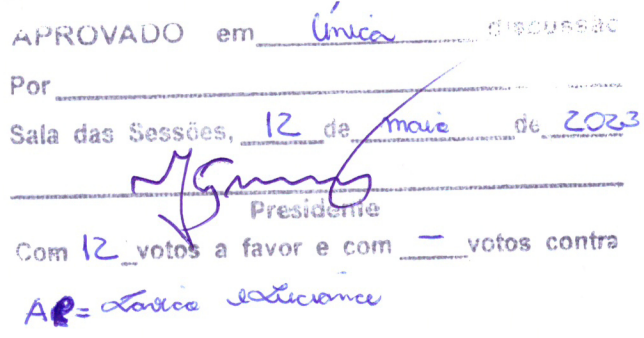 APROVADO em Única discussão
Por
Sala das Sessões, 12 de maio de 2023
Presidente
Com 12 votos a favor e com - votos contra
=